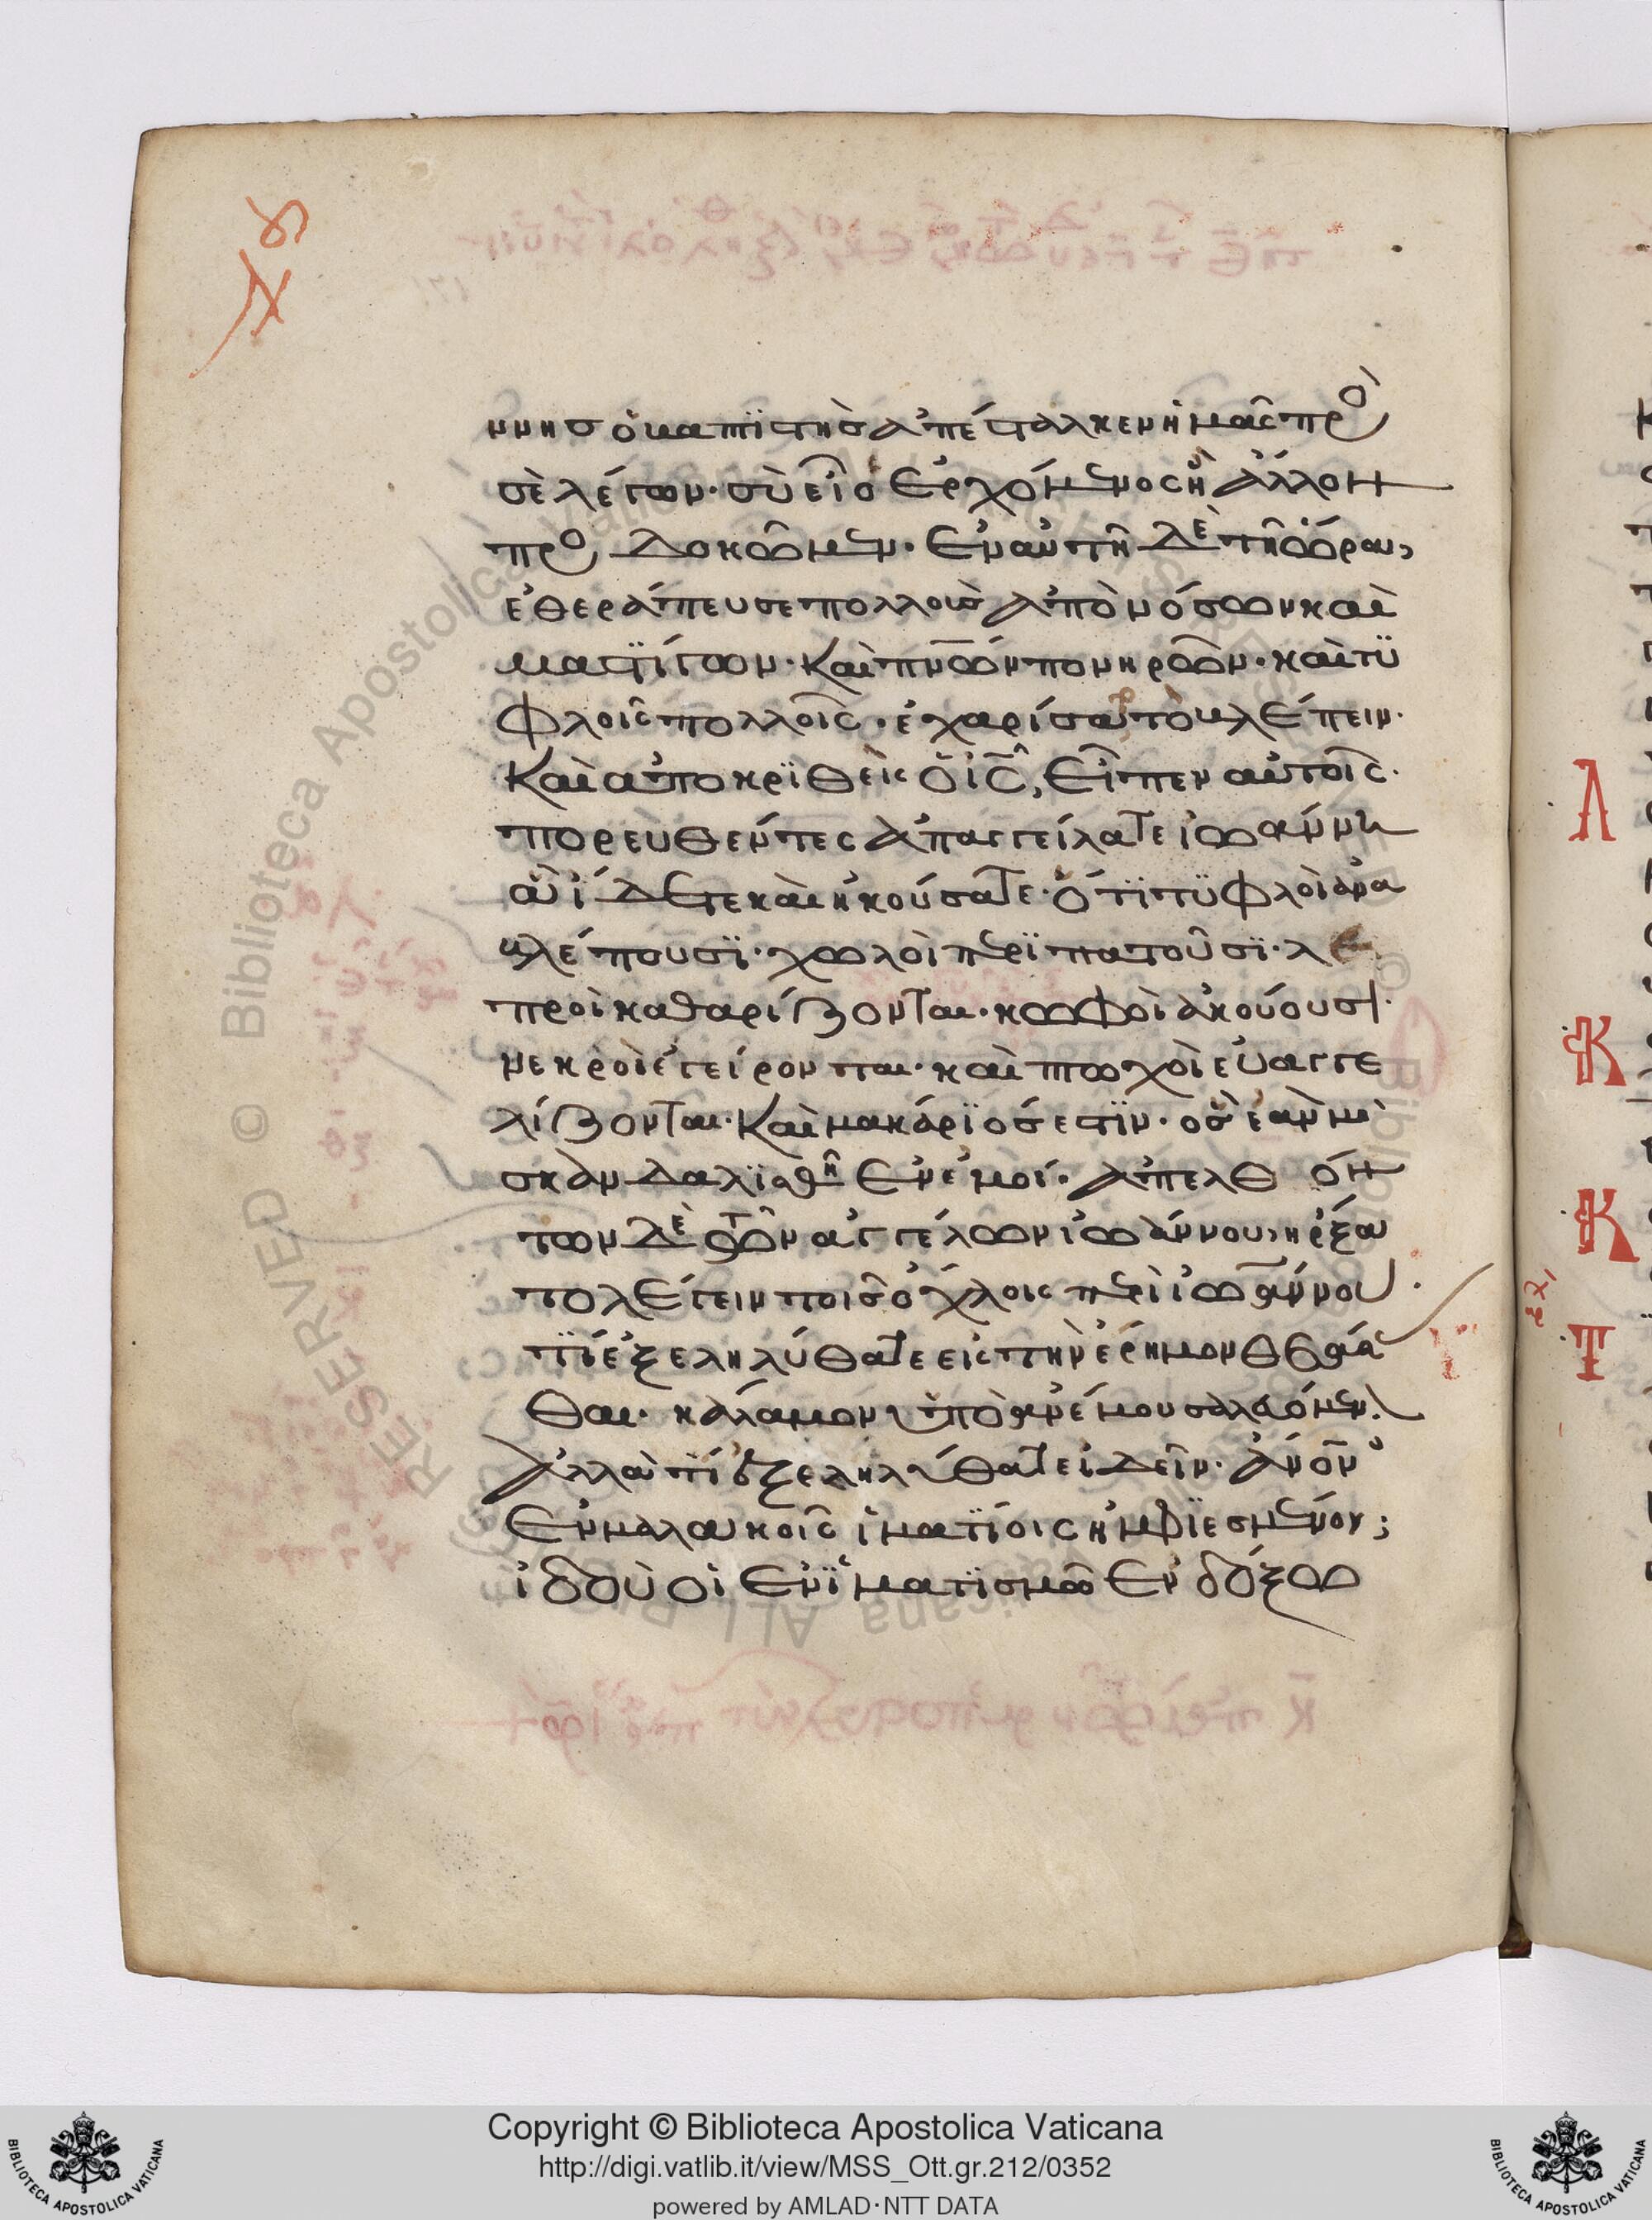 ννησ ὁ βαπτϊστὴσ ἀπέσταλκεν ἡμᾶς πρὸ
σὲ λέγων· σὺ εἶ ὁ ἐρχόμενος ἢ ἄλλον
προ δοκῶμεν. Ἐν αὐτῆ δὲ τῆ ὥρα,
ἐθεράπευσε πολλοὺσ ἀπὸ νόσων καὶ
μαστΐγων. Καὶ πν̅ων πονηρῶν. καὶ τϋ
φλοῖς πολλοῖς. ἐχαρίσατο βλέπειν.
Καὶ ἀποκρϊθεὶς ὁ ις̅, εἶπεν αὐτοῖς.
πορευθέντες ἀπαγγείλατε ἰωάννη
ἃ ἴδετε καὶ ἠκούσατε. ὅτϊ τϋφλοὶ ἀνα
βλέπουσϊ. χωλοὶ περϊπατοῦσϊ. λε
προὶ καθαρίζονται. κωφοὶ ἀκούουσι.
νεκροὶ ἐγείρονται. καὶ πτωχοὶ εὐαγγε
λίζονται. Καὶ μακάρϊόσ εστϊν. ὃσ ἐὰν μὴ
σκανδαλϊσθῆ ἐν ἐμοί. ἀπελθόν
των δὲ τῶν ἀγγέλων ἰωάννου, ἤρξα
το λέγειν τοῖσ ὄχλοις περὶ ἰωάννου.
τΐ ἐξεληλύθατε εἰς τὴν ἔρημον θεάσα
θαι. κάλαμον ὑπὸ ἀνέμου σαλευόμενον.
ἀλλὰ τΐ ἐξεληλύθατε ἰδεῖν. ἄνο̅ν
ἐν μαλακοῖς ἱματΐοις ἠμφϊεσμένον;
ἰδοὺ οἱ ἐν ϊματϊσμῶ ἐνδόξω
Copyright © Biblioteca Apostolica Vaticana
http://digi.vatlib.it/view/MSS_Ott.gr.212/0352
powered by AMLAD·NTT DATA
BIBLIOTECA APOSTOLICA VATICANA
BIBLIOTECA APOSTOLICA VATICANA